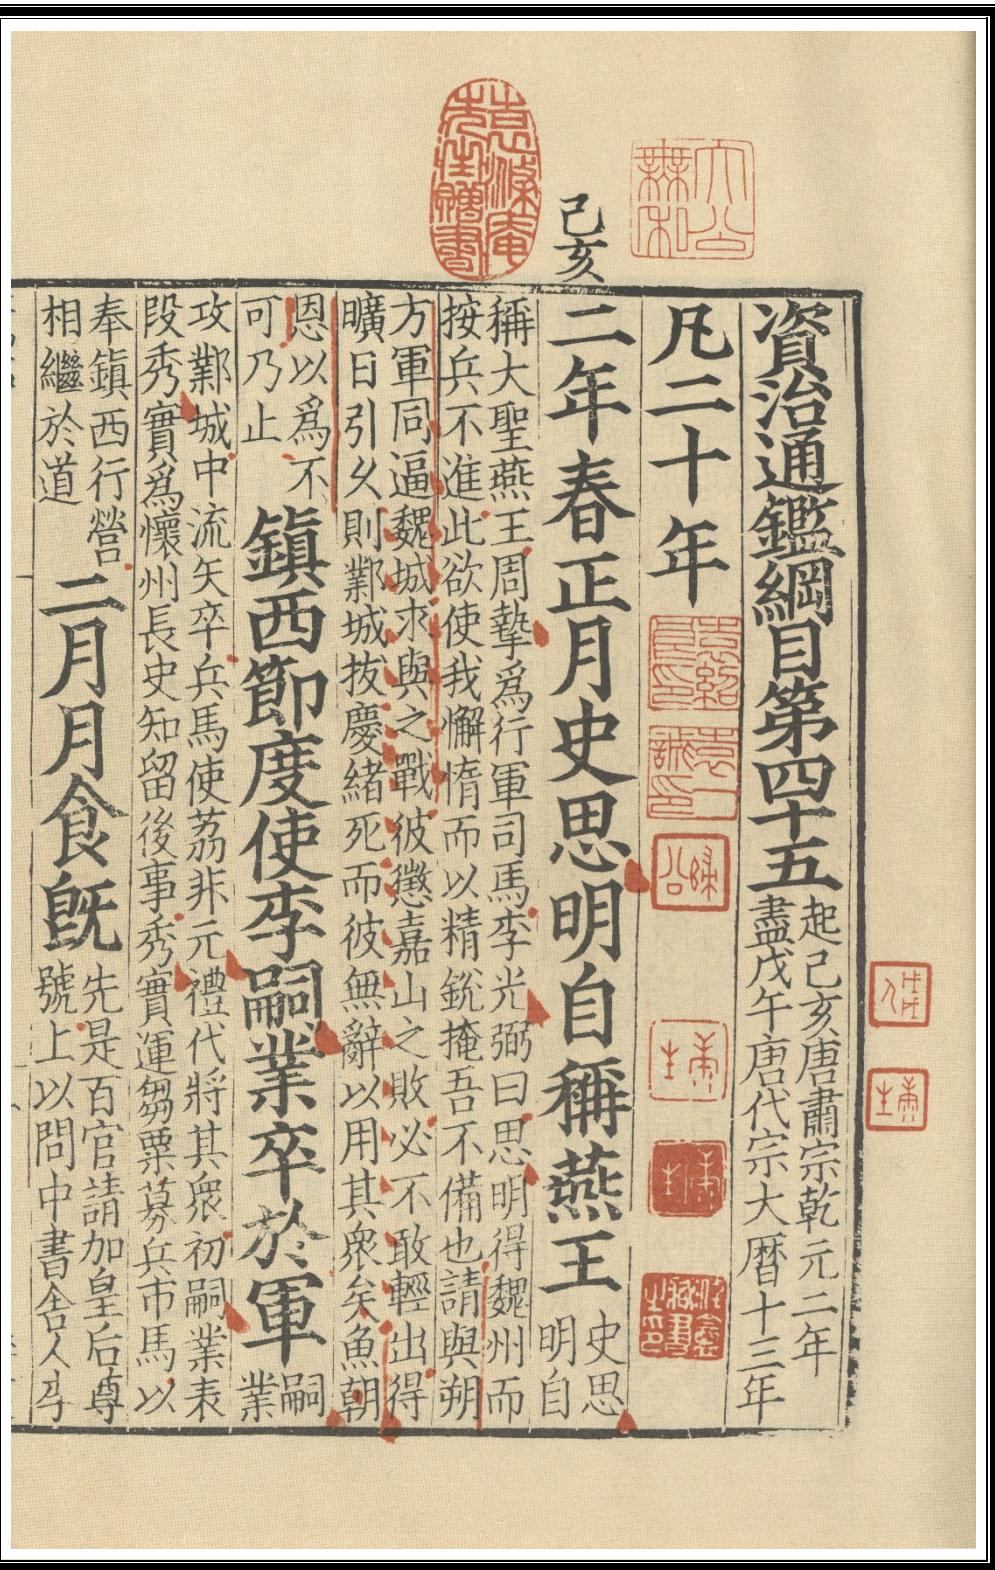 袁滌庵
先生贈書
大公
無私
資治通鑑綱目第四十五
起己亥唐肅宗乾元二年
盡戊午唐代宗大暦十三年
凡二十年
袁一
誠印
歸公
己亥
二年春正月史思明自稱燕王
史思
明自
稱大聖燕王周摯爲行軍司馬李光弼曰思明得魏州而
按兵不進此欲使我懈惰而以精銳掩吾不備也請與朔
方軍同逼魏城求與之戰彼懲嘉山之敗必不敢輕出得
曠日引久則鄴城拔慶緒死而彼無辭以用其衆矣魚朝
恩以爲不
可乃止
鎮西節度使李嗣業卒於軍
嗣
業
攻鄴城中流矢卒兵馬使荔非元禮代將其衆初嗣業表
段秀實爲懷州長史知留後事秀實運芻粟募兵市馬以
奉鎮西行營
相繼於道
二月月食旣
先是百官請加皇后尊
號上以問中書舍人李